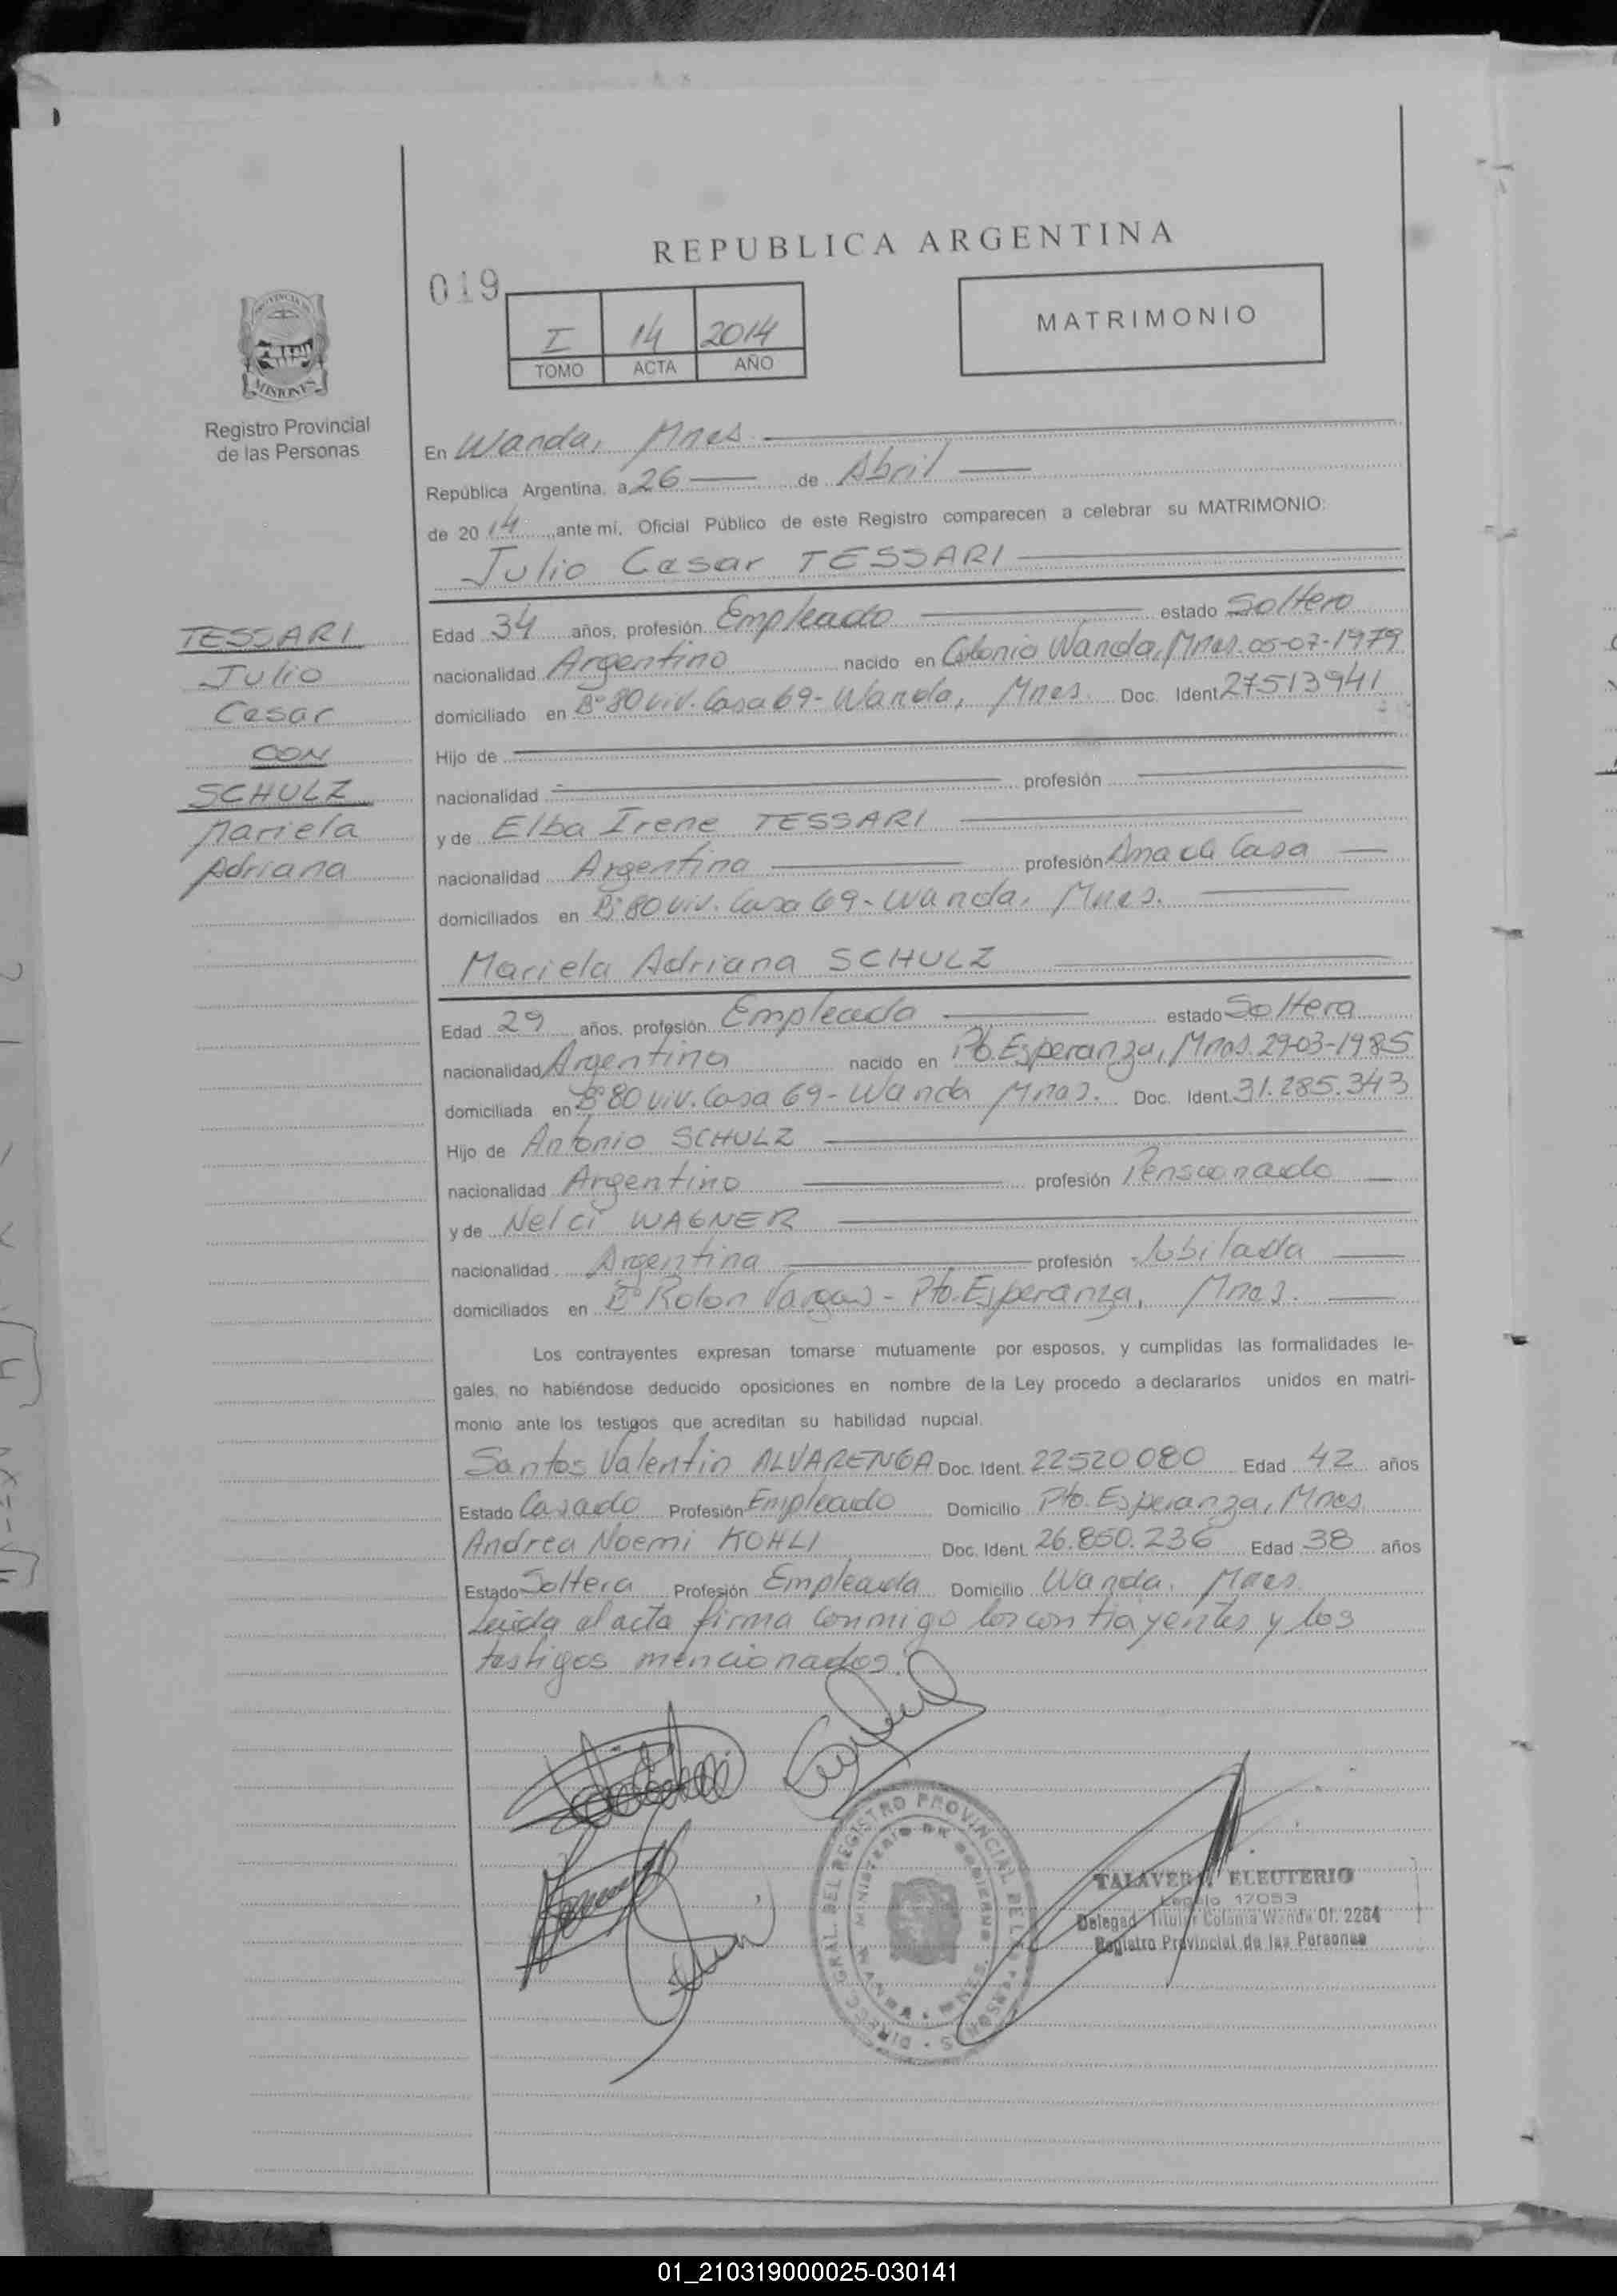 REPUBLICA ARGENTINA
019
MATRIMONIO
I 14 2014
TOMO ACTA AÑO
PROVINCIA DE
MISIONES
Registro Provincial
de las Personas
En Wanda, Mnes
República Argentina, a 26 de Abril
de 2014 ante mí, Oficial Público de este Registro comparecen a celebrar su MATRIMONIO:
Julio Cesar TESSARI
TESSARI
Julio
Cesar
CON
SCHULZ
Mariela
Adriana
Edad 34 años, profesión Empleado estado Soltero
nacionalidad Argentino nacido en Colonia Wanda, Mnes. 05-07-1979
domiciliado en B° 80 viv. Casa 69 - Wanda, Mnes. Doc. Ident. 27513941
Hijo de
nacionalidad profesión
y de Elba Irene TESSARI
nacionalidad Argentina profesión Ama de Casa
domiciliados en B° 80 viv. Casa 69 - Wanda, Mnes.
Mariela Adriana SCHULZ
Edad 29 años, profesión Empleada estado Soltera
nacionalidad Argentina nacido en Pto. Esperanza, Mnes. 29-03-1985
domiciliada en B° 80 viv. Casa 69 - Wanda Mnes. Doc. Ident. 31.285.343
Hijo de Antonio SCHULZ
nacionalidad Argentino profesión Pensionado
y de Nelci WAGNER
nacionalidad Argentina profesión Jubilada
domiciliados en B° Rolon Vargas - Pto. Esperanza, Mnes.
Los contrayentes expresan tomarse mutuamente por esposos, y cumplidas las formalidades le-
gales, no habiéndose deducido oposiciones en nombre de la Ley procedo a declararlos unidos en matri-
monio ante los testigos que acreditan su habilidad nupcial.
Santos Valentin ALVARENGA Doc. Ident. 22520080 Edad 42 años
Estado Casado Profesión Empleado Domicilio Pto. Esperanza, Mnes
Andrea Noemi KOHLI Doc. Ident. 26.850.236 Edad 38 años
Estado Soltera Profesión Empleada Domicilio Wanda, Mnes
Leida el acta firma conmigo los contrayentes y los
testigos mencionados.
DIRECC. GRAL. DEL REGISTRO PROVINCIAL DE LAS PERSONAS
MINISTERIO DE GOBIERNO
WANDA - MNES.
TALAVERA ELEUTERIO
Legajo 17053
Delegad Titular Colonia Wanda Of. 2284
Registro Provincial de las Personas
01_210319000025-030141